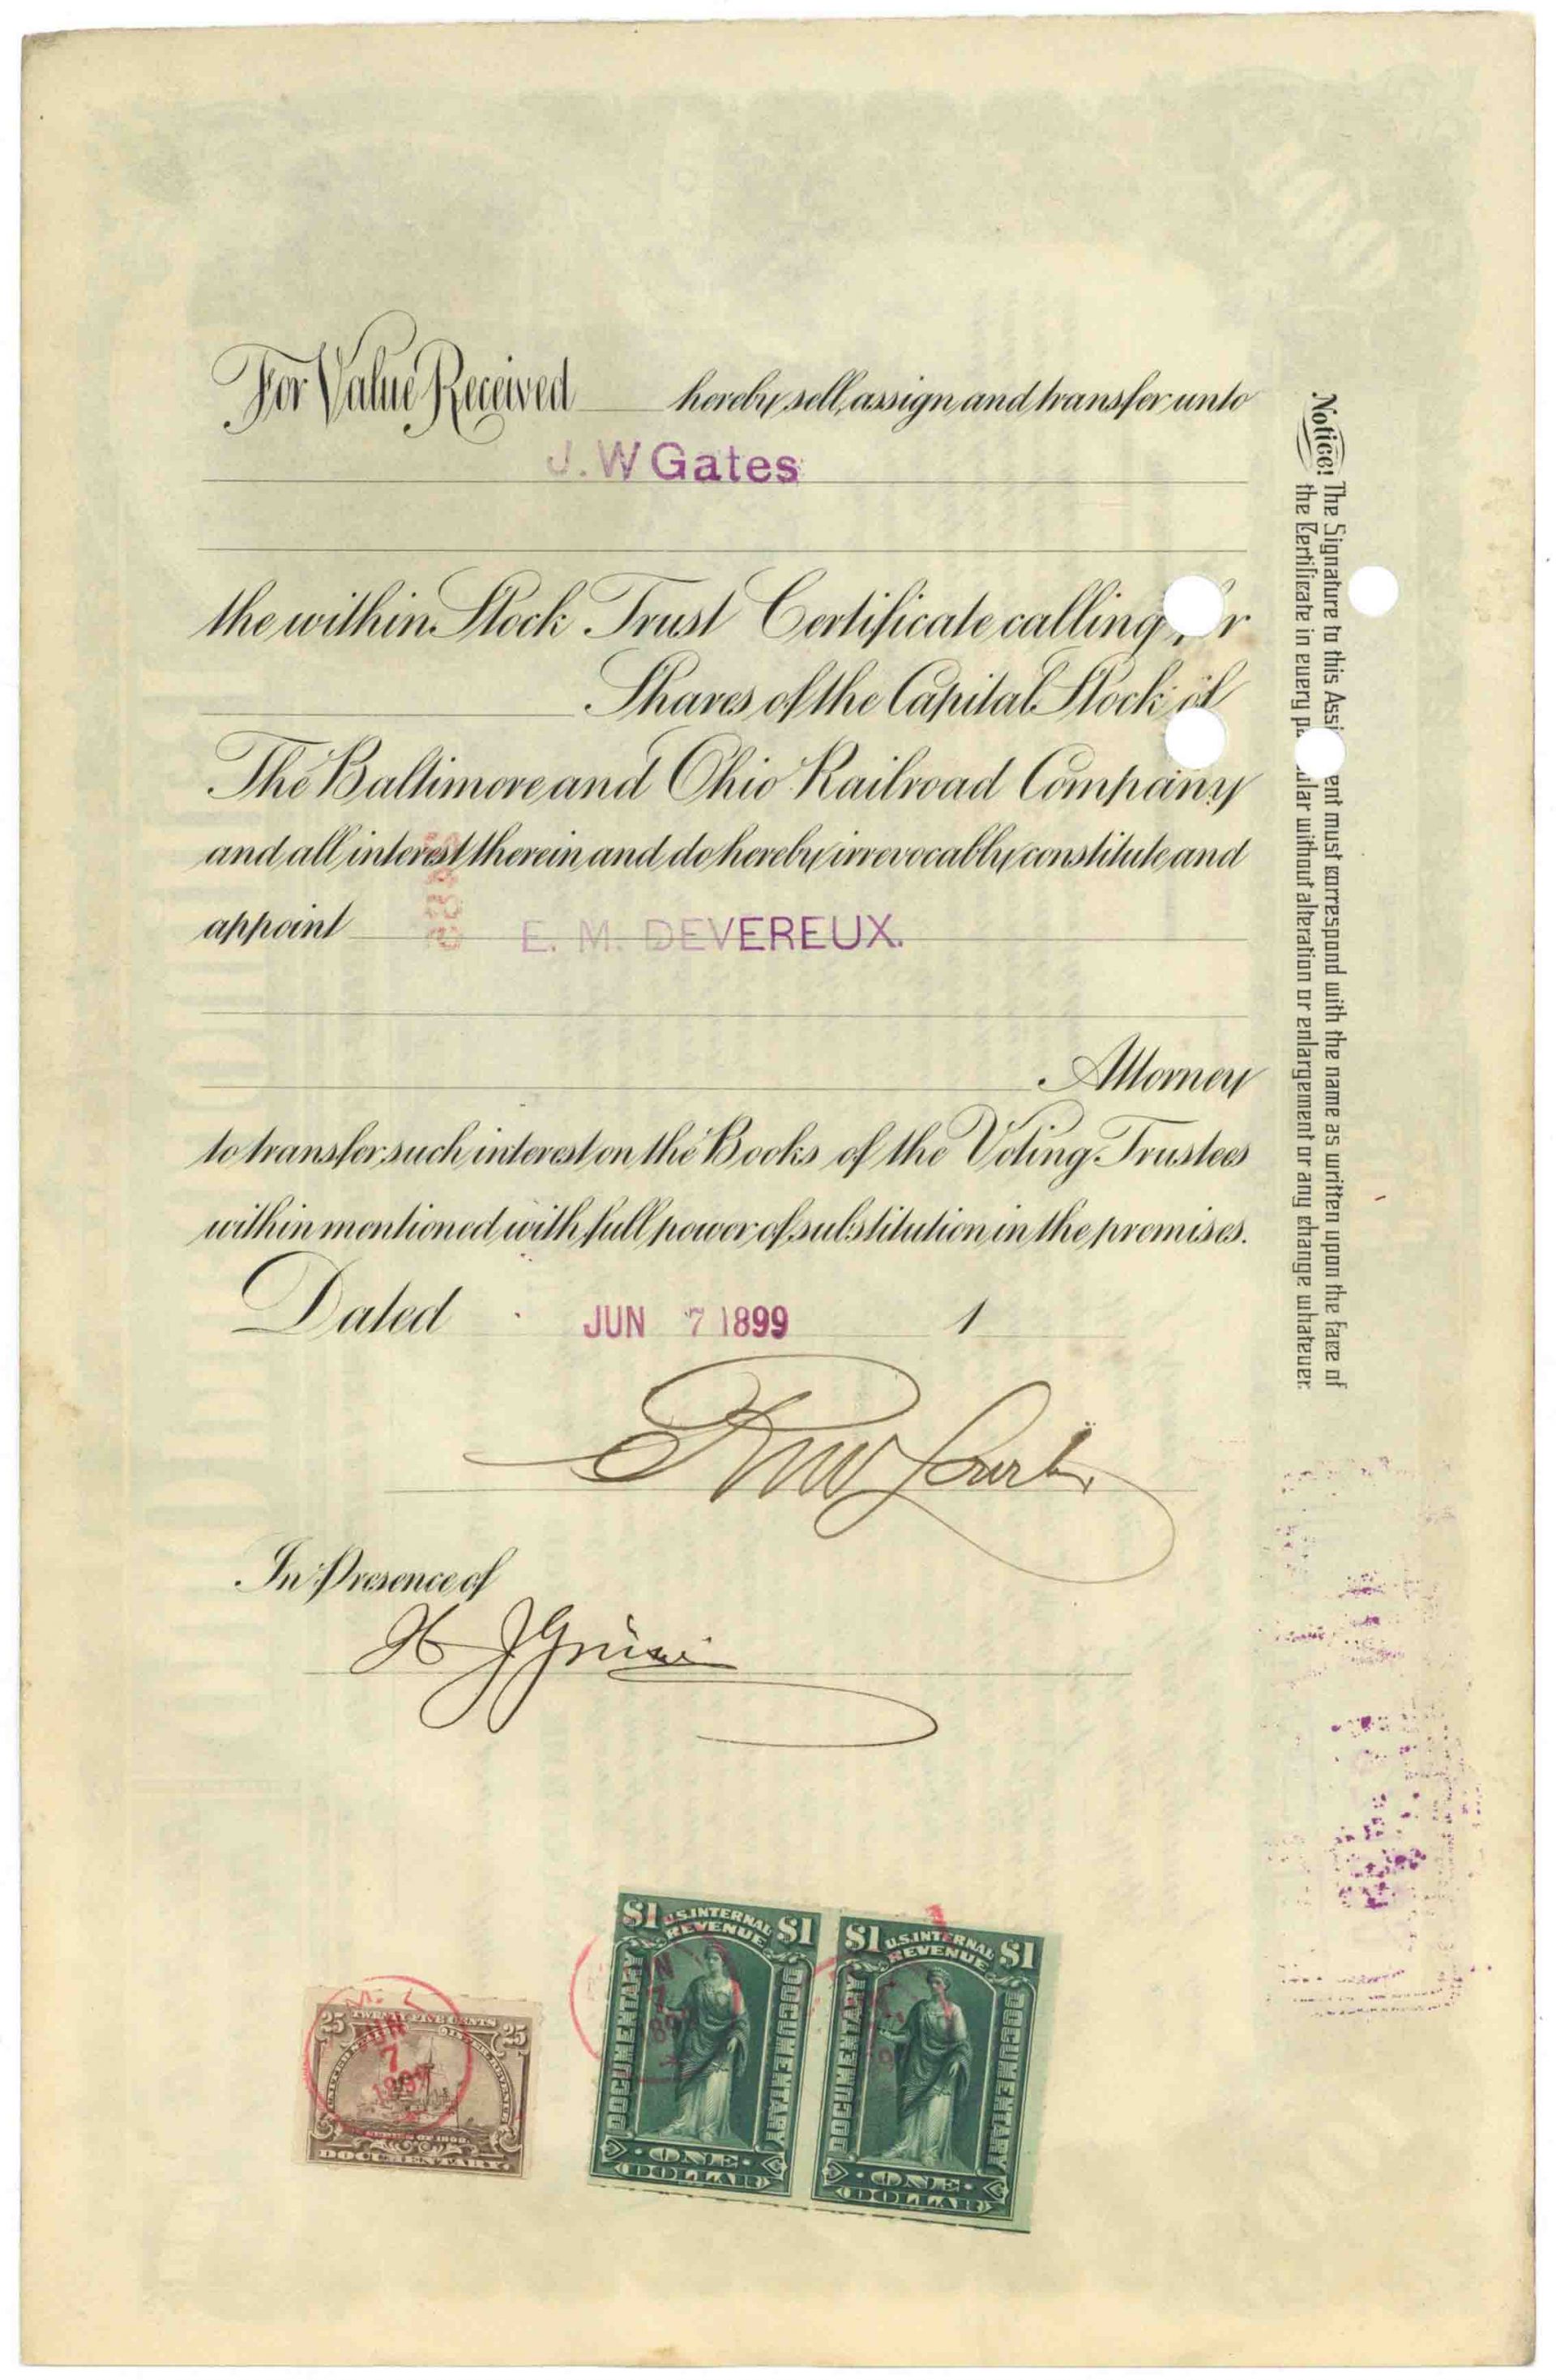 For Value Received hereby sell, assign and transfer unto
J. W Gates
the within Stock Trust Certificate calling
Shares of the Capital Stock of
The Baltimore and Ohio Railroad Company
and all interest therein and do hereby irrevocably constitute and
appoint E. M. DEVEREUX.
Attorney
to transfer such interest on the Books of the Voting Trustees
within mentioned with full power of substitution in the premises.
Dated JUN 7 1899 1
In Presence of
H J
Notice! The Signature to this Assi ent must correspond with the name as written upon the face of
the Certificate in every pa ular without alteration or enlargement or any change whatever.
25 TWENTY FIVE CENTS 25
JUN
7
1899
DOCUMENTARY
$1 U.S. INTERNAL REVENUE $1
DOCUMENTARY DOCUMENTARY
JUN
7
ONE
DOLLAR
$1 U.S. INTERNAL REVENUE $1
DOCUMENTARY DOCUMENTARY
ONE
DOLLAR